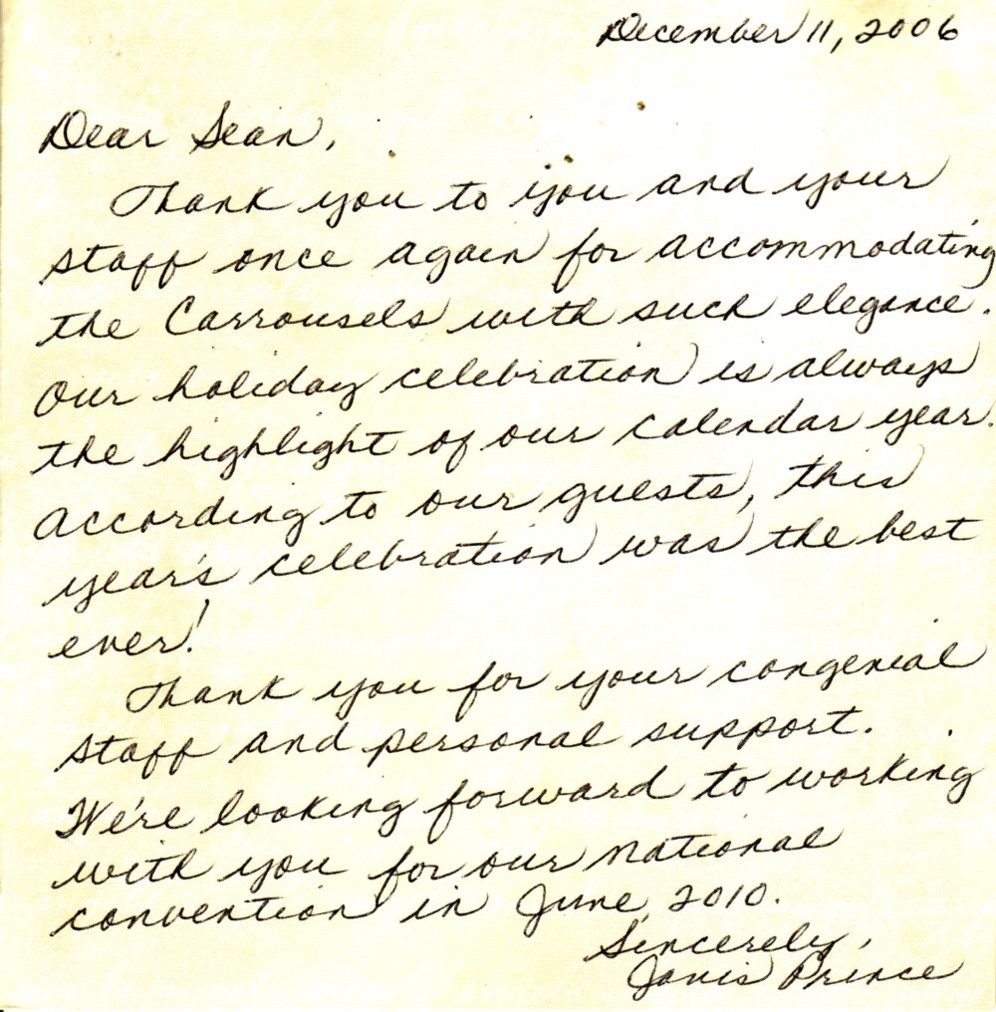 December 11, 2006
Dear Sean,
Thank you to you and your
staff once again for accommodating
the Carrousels with such elegance.
Our holiday celebration is always
the highlight of our calendar year.
According to our guests, this
year's celebration was the best
ever!
Thank you for your congenial
staff and personal support.
We're looking forward to working
with you for our national
convention in June, 2010.
Sincerely,
Janis Prince